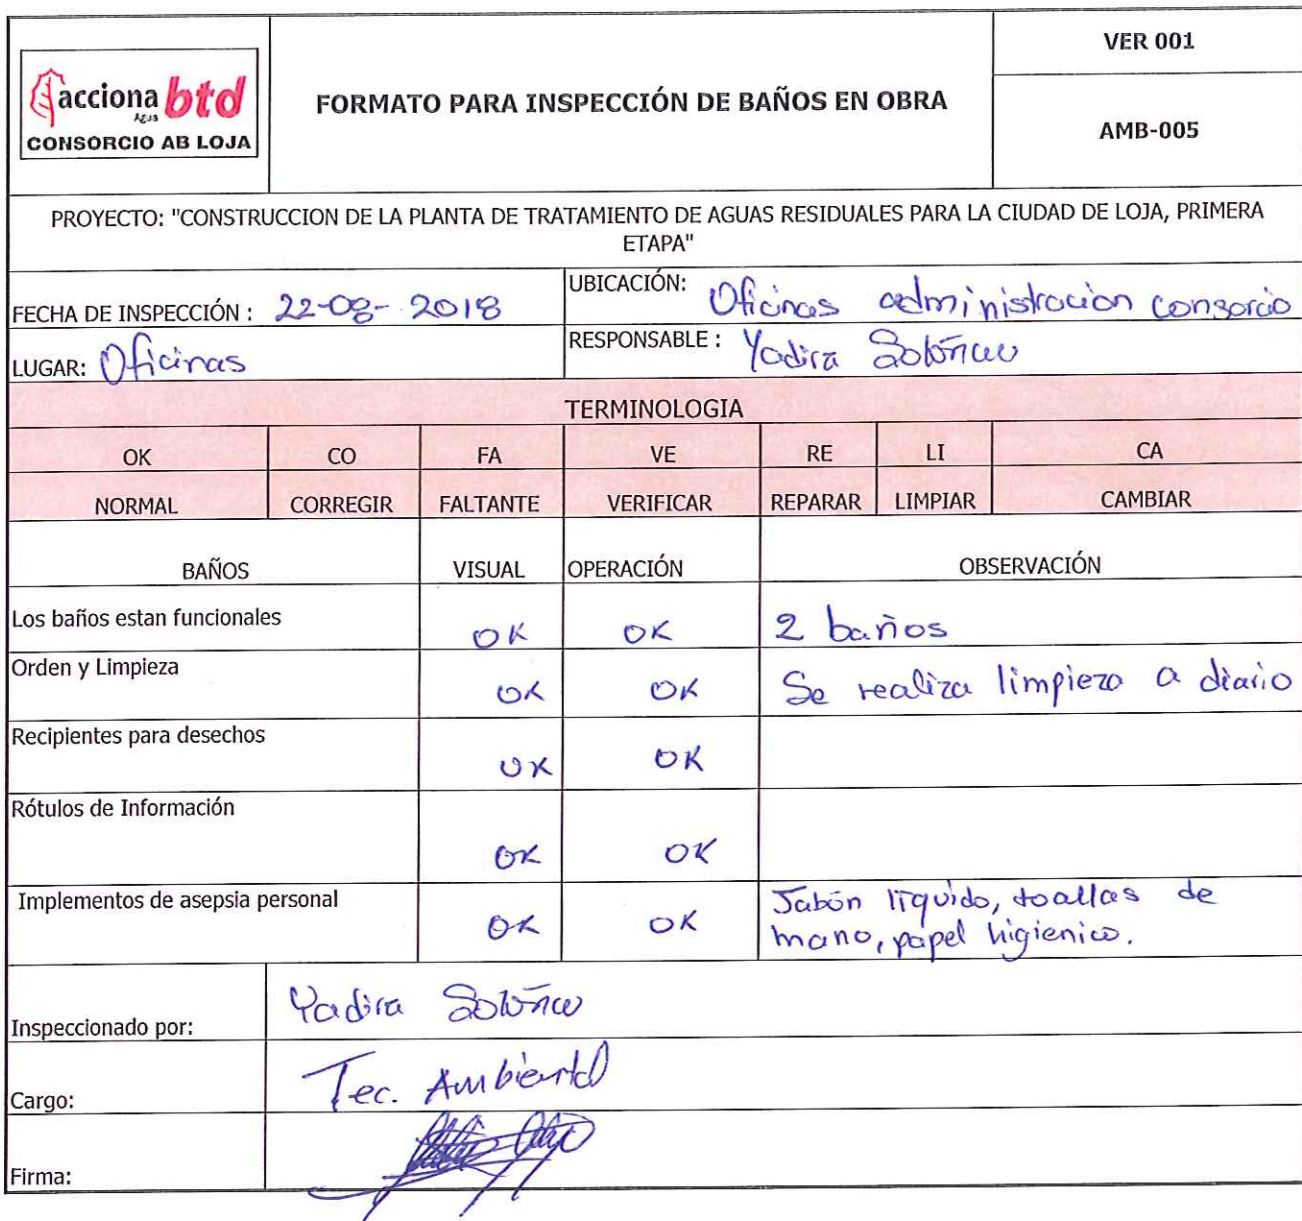 acciona btd
Agua
CONSORCIO AB LOJA
FORMATO PARA INSPECCIÓN DE BAÑOS EN OBRA
VER 001
AMB-005
PROYECTO: "CONSTRUCCION DE LA PLANTA DE TRATAMIENTO DE AGUAS RESIDUALES PARA LA CIUDAD DE LOJA, PRIMERA
ETAPA"
FECHA DE INSPECCIÓN : 22-08-2018
UBICACIÓN: Oficinas administracion consorcio
LUGAR: Oficinas
RESPONSABLE : Yadira
TERMINOLOGIA
OK CO FA VE RE LI CA
NORMAL CORREGIR FALTANTE VERIFICAR REPARAR LIMPIAR CAMBIAR
BAÑOS VISUAL OPERACIÓN OBSERVACIÓN
Los baños estan funcionales OK OK 2 baños
Orden y Limpieza OK OK Se realiza limpieza a diario
Recipientes para desechos OK OK
Rótulos de Información OK OK
Implementos de asepsia personal OK OK Jabón líquido, toallas de
mano, papel higienico.
Inspeccionado por: Yadira
Cargo: Tec. Ambiental
Firma: